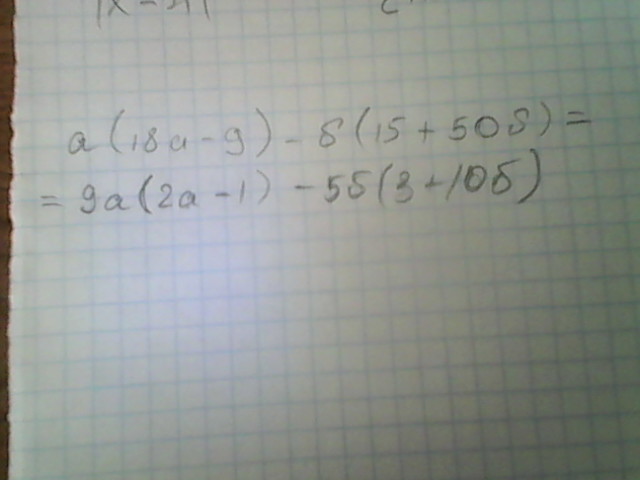 a(18a-9)-б(15+50б)=
=9a(2a-1)-5б(3+10б)